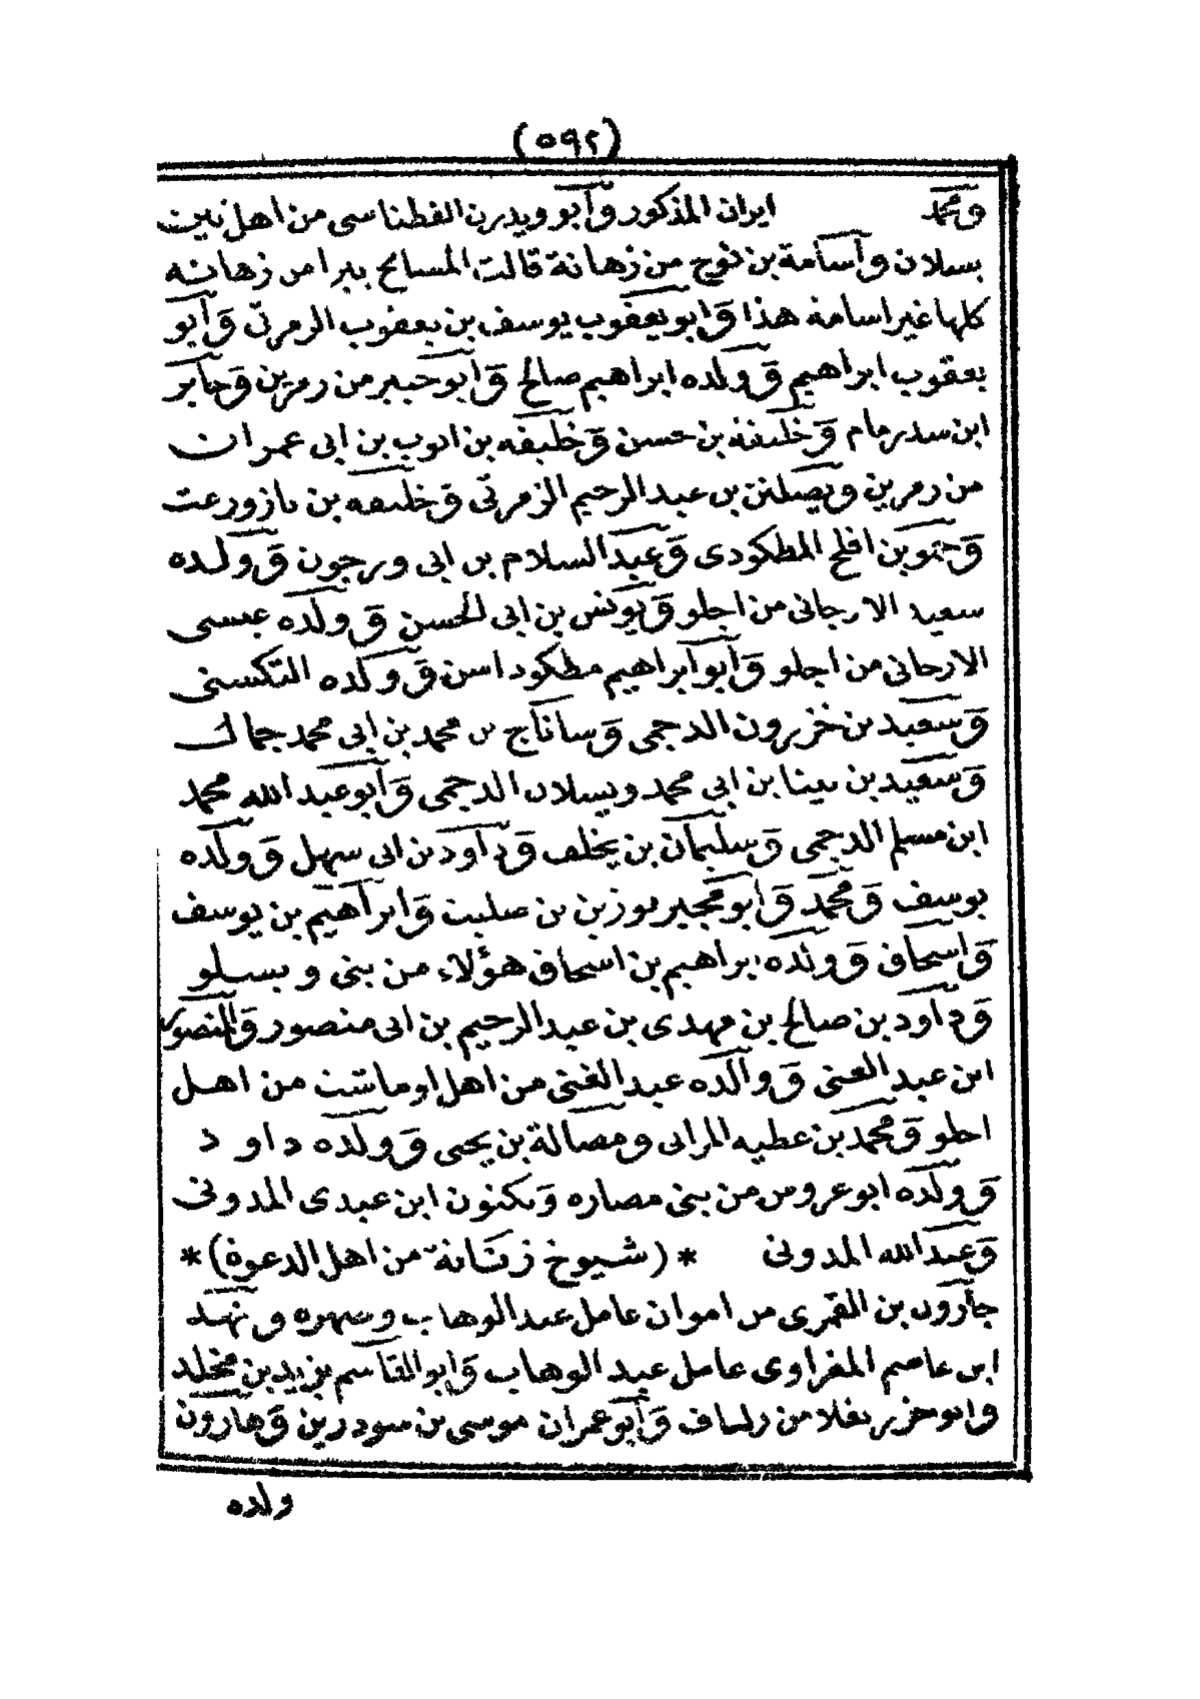 (٥٩٢)
ومحمد ايران المذكور وأبو ويدرن الفطناسى من اهل تين
بسلان وأسامة بن نوح من زهانة قالت المسايخ ببرا من زهانه
كلها غير اسامه هذا وابو يعقوب يوسف بن يعقوب الزمرتى وأبو
يعقوب ابراهيم وولده ابراهيم صالح وأبو حبيب من رمرين وجابر
ابن سدرمام وخليفة بن حسن وخليفه بن ايوب بن ابى عمران
من رمرين ويصلتن بن عبد الرحيم الزمرتى وخليفه بن يازورعت
وحنو بن افلح المطكودى وعبد السلام بن ابى ورجون وولده
سعيد الارجانى من اجلو ويونس بن ابى الحسن وولده عيسى
الارجانى من اجلو وأبو ابراهيم مطكوداسن وولده التكسنى
وسعيد بن خزرون الدجمى وساناج بن محمد بن ابى محمد جمال
وسعيد بن يينا بن ابى محمد ويسلان الدجمى وأبو عبد الله محمد
ابن مسلم الدجمى وسليمان بن يخلف وداود بن ابى سهل وولده
يوسف ومحمد وابو مجبر يوزين بن صليت وابراهيم بن يوسف
واسحاق وولده ابراهيم بن اسحاق هؤلاء من بنى ويسلو
وداود بن صالح بن مهدى بن عبد الرحيم بن ابى منصور والمنصور
ابن عبد الغنى ووالده عبد الغنى من اهل اوماشت من اهل
اجلو ومحمد بن عطيه المرانى ومصالة بن يحيى وولده داود
وولده ابو عروس من بنى مصاره وتكنون ابن عبدى المدونى
وعبد الله المدونى * (شيوخ زناتة من اهل الدعوة) *
جارون بن القمرى من اموان عامل عبد الوهاب وسهره ونهد
ابن عاصم المغراوى عامل عبد الوهاب وابو القاسم يزيد بن مخلد
وابو خزر يغلا من زلساف وأبو عمران موسى بن سودرين وهارون
ولده